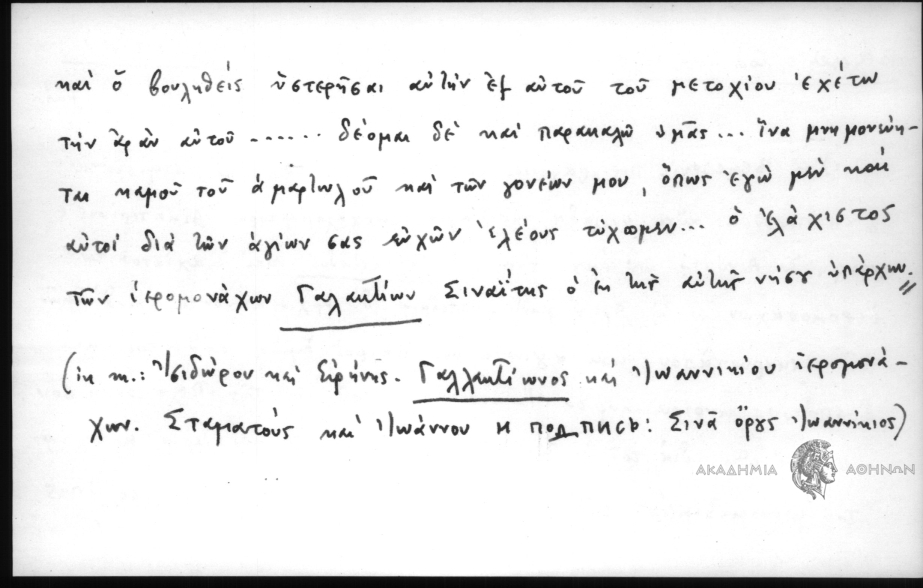 καὶ ὁ βουληθεὶς ὑστερῆσαι αὐτὴν ἐξ αὐτοῦ τοῦ μετοχίου ἐχέτω
τὴν ἀρὰν αὐτοῦ ...... δέομαι δὲ καὶ παρακαλῶ ὑμᾶς... ἵνα μνημονεύη-
ται καμοῦ τοῦ ἁμαρτωλοῦ καὶ τῶν γονέων μου, ὅπως ἐγὼ μὲν καὶ
αὐτοὶ διὰ τῶν ἁγίων σας εὐχῶν ἐλέους τύχωμεν... ὁ ἐλάχιστος
τῶν ἱερομονάχων Γαλακτίων Σιναΐτης ὁ ἐκ τῆς αὐτῆς νήσου ὑπάρχων.
(ἐκ π.: Ἰσιδώρου καὶ Εἰρήνης. Γαλλακτίωνος καὶ Ἰωαννικίου ἱερομονά-
χων. Σταματοῦς καὶ Ἰωάννου и подпись: Σινᾶ ὄρους Ἰωαννίκιος)
ΑΚΑΔΗΜΙΑ ΑΘΗΝΩΝ